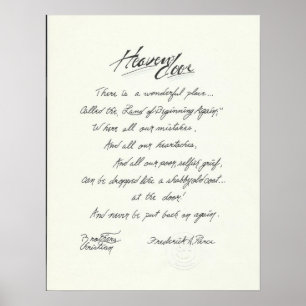 Heaven's Door
There is a wonderful place...
Called the "Land of Beginning Again,"
Where all our mistakes,
And all our heartaches,
And all our poor, selfish grief,
can be dropped like a shabby old coat...
at the door!
And never be put back on again.
Brothers Frederick N. Pierce
Christian